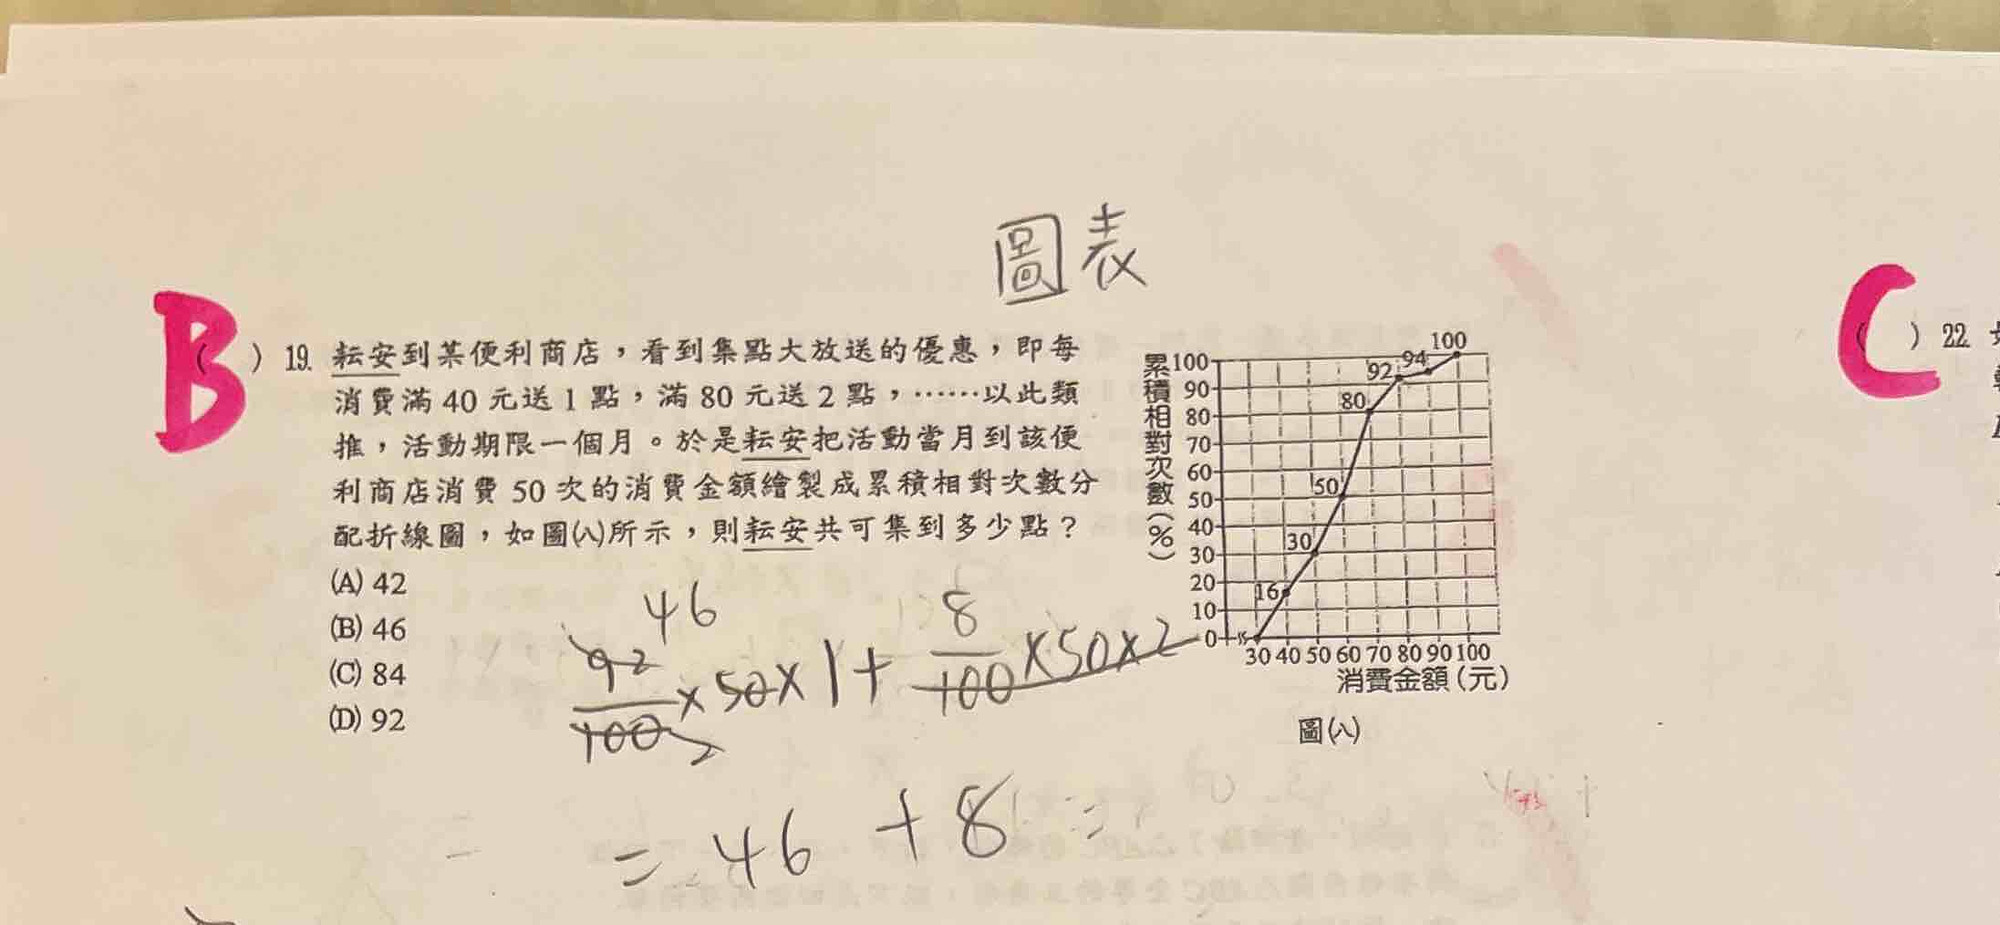 圖表
B
( ) 19. 耘安到某便利商店,看到集點大放送的優惠,即每
消費滿 40 元送 1 點,滿 80 元送 2 點,……以此類
推,活動期限一個月。於是耘安把活動當月到該便
利商店消費 50 次的消費金額繪製成累積相對次數分
配折線圖,如圖(八)所示,則耘安共可集到多少點?
(A) 42
(B) 46
(C) 84
(D) 92
累積相對次數(%)
100
90
80
70
60
50
40
30
20
10
0
16
30
50
80
92
94
100
30 40 50 60 70 80 90 100
消費金額(元)
圖(八)
46
92/100 2 × 50 × 1 + 8/100 × 50 × 2
= 46 + 8
C
( ) 22.